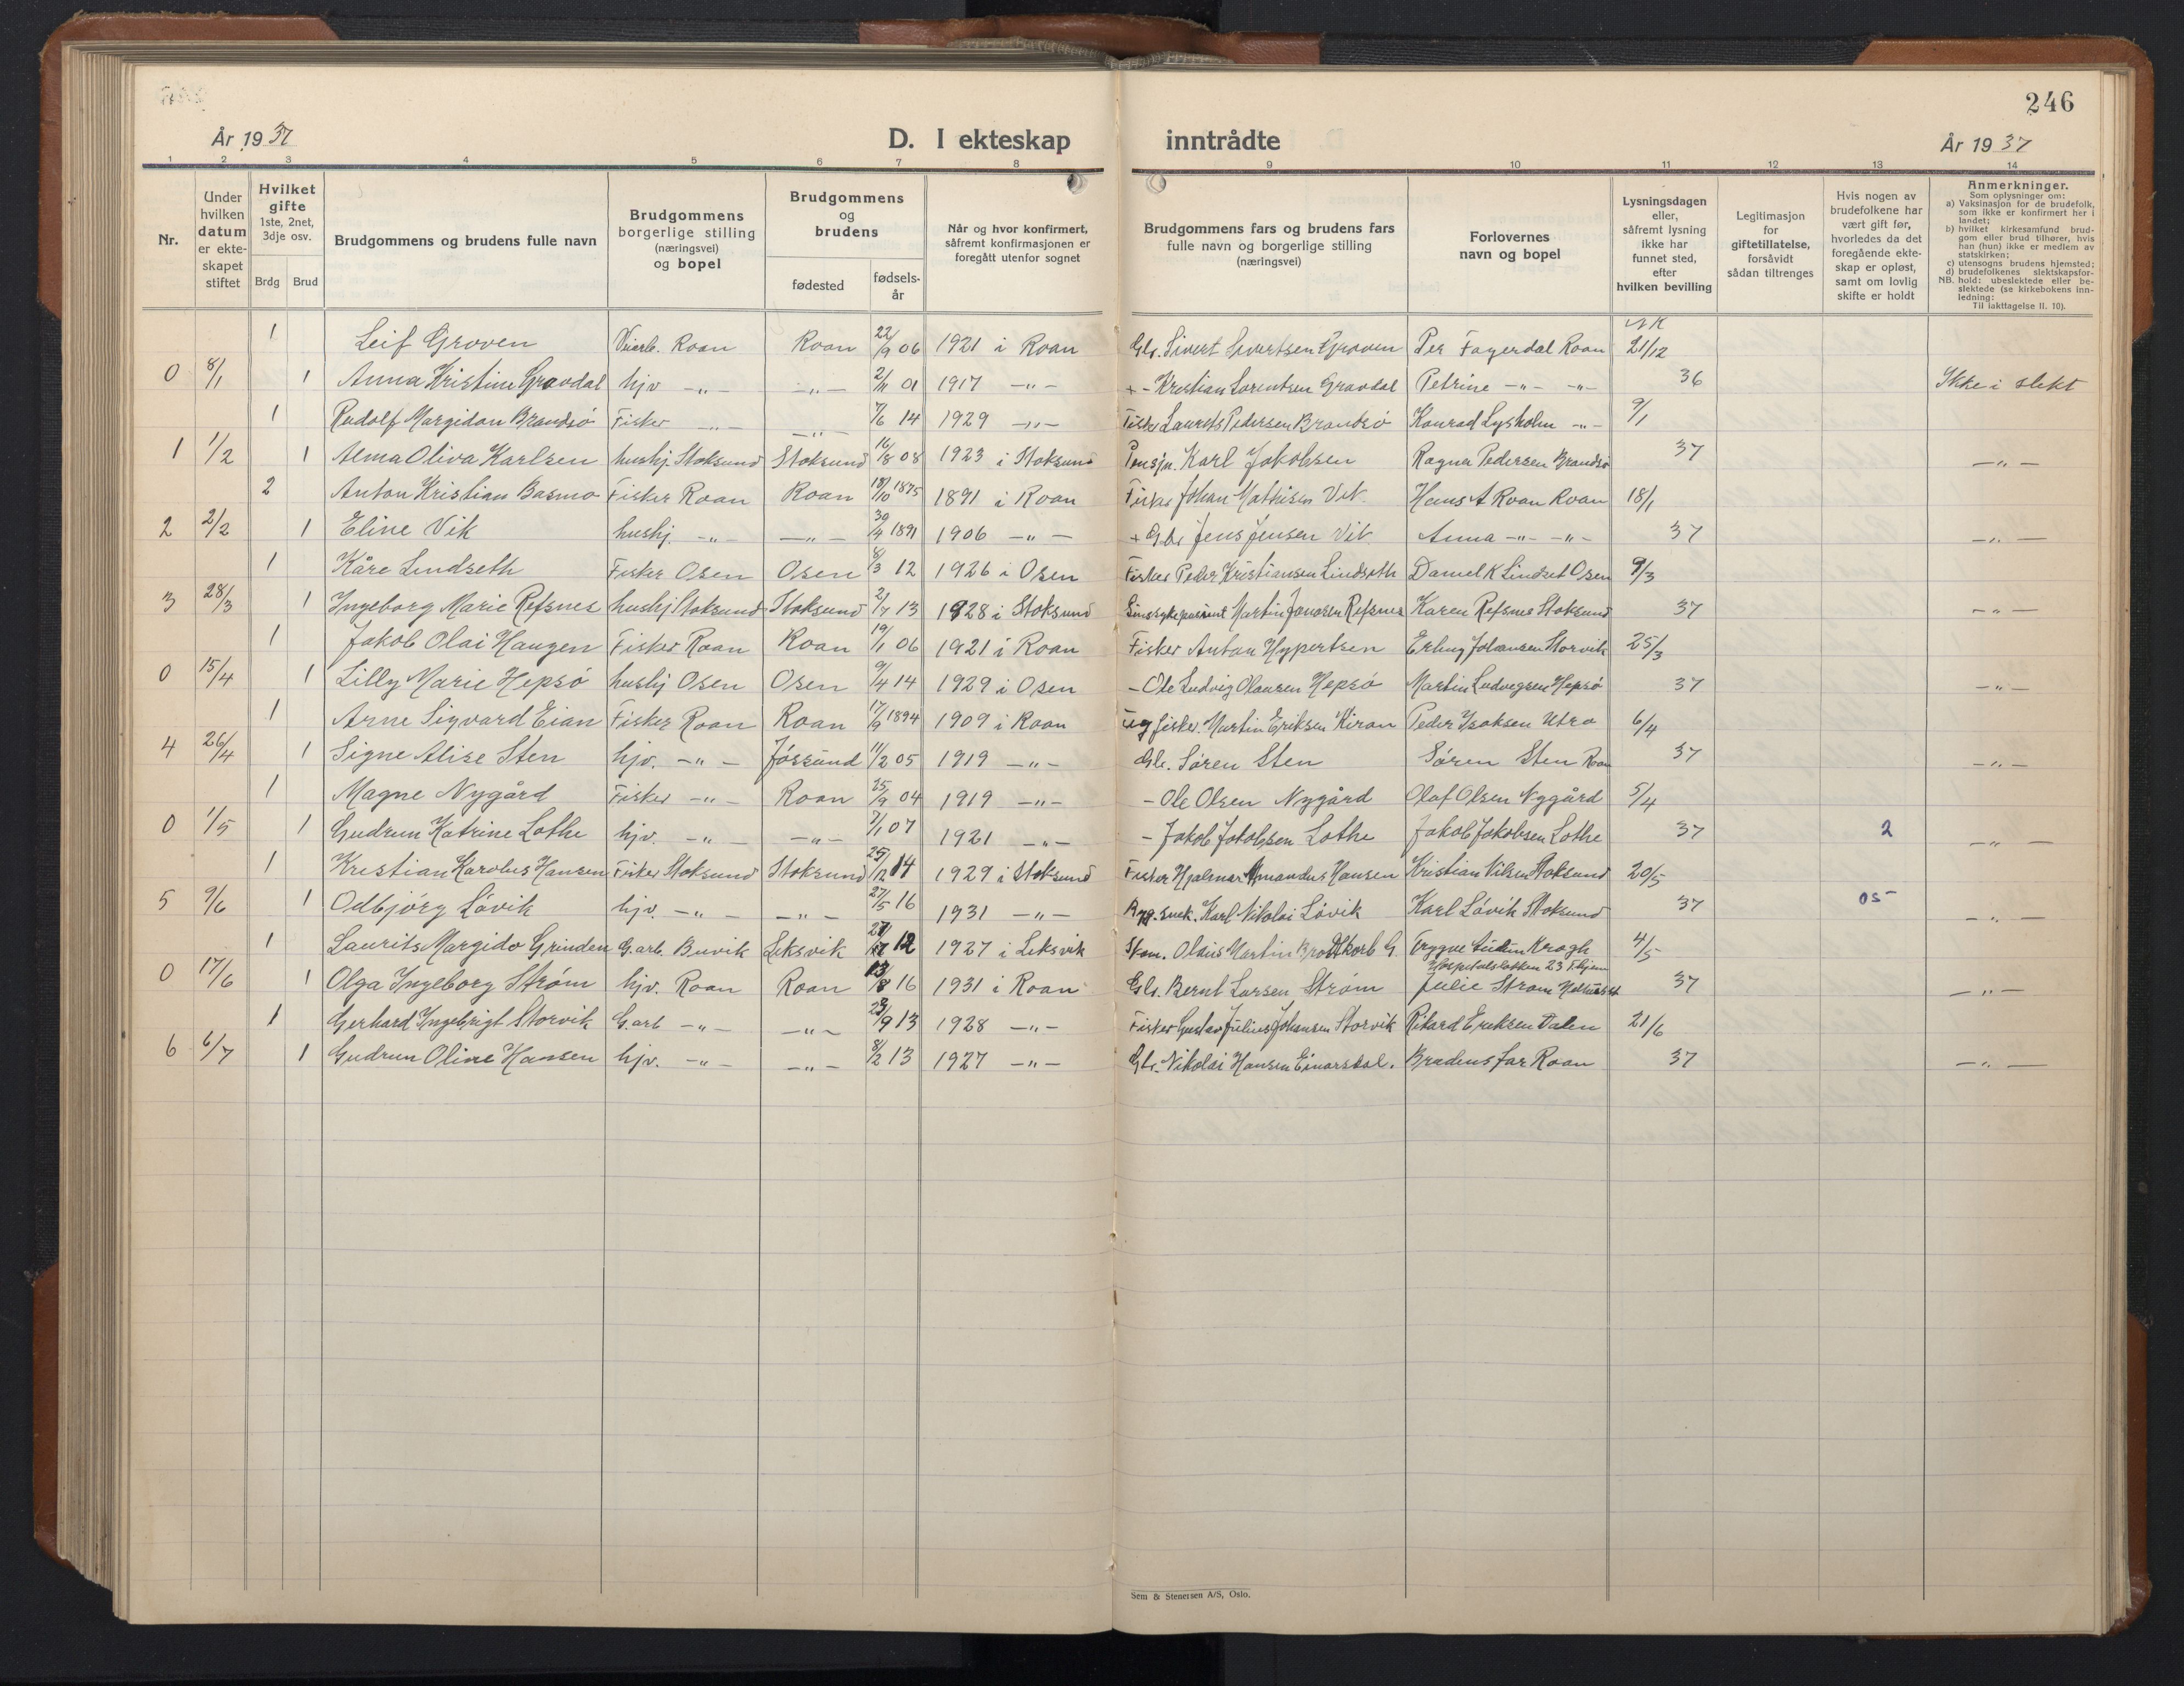 246
År 1937
D. I ekteskap inntrådte
År 1937
1 2 3 4 5 6 7 8 9 10 11 12 13 14
Nr.
Under hvilken datum er ekteskapet stiftet
Hvilket gifte 1ste, 2net, 3dje osv.
Brdg Brud
Brudgommens og brudens fulle navn
Brudgommens borgerlige stilling (næringsvei) og bopel
Brudgommens og brudens
fødested
fødselsår
Når og hvor konfirmert, såfremt konfirmasjonen er foregått utenfor sognet
Brudgommens fars og brudens fars fulle navn og borgerlige stilling (næringsvei)
Forlovernes navn og bopel
Lysningsdagen eller, såfremt lysning ikke har funnet sted, efter hvilken bevilling
Legitimasjon for giftetillatelse, forsåvidt sådan tiltrenges
Hvis nogen av brudefolkene har vært gift før, hvorledes da det foregående ekteskap er opløst, samt om lovlig skifte er holdt
Anmerkninger.
Som oplysninger om:
a) Vaksinasjon for de brudefolk, som ikke er konfirmert her i landet;
b) hvilket kirkesamfund brudgom eller brud tilhører, hvis han (hun) ikke er medlem av statskirken;
c) utensogns brudens hjemsted;
d) brudefolkenes slektskapsforhold: ubeslektede eller beslektede (se kirkebokens innledning:
NB. Til iakttagelse II. 10).
1 Leif Groven Roan Roan 22/9 06 1921 i Roan Gbr. Sivert Sivertsen Groven Per Fagerdal Roan 21/12
0 8/1 1 Anna Kristine Gravdal hjv -"- -"- 2/11 01 1917 -"- + - Kristian Lorentsen Gravdal Petrine -"- -"- 36 Ikke i slekt
1 Rudolf Margidon Brandsø Fisker -"- -"- 7/6 14 1929 -"- Fisker Laurits Pedersen Brandsø Konrad Lysholm -"- 9/1
1 1/2 1 Alma Oliva Karlsen hushj. Stoksund Stoksund 16/8 08 1923 i Stoksund Pensjn. Karl Jakobsen Ragna Pedersen Brandsø 37 -"-
2 Anton Kristian Basmo Fisker Roan Roan 18/10 1875 1891 i Roan Fisker Johan Mathisen Vik Hans A Roan Roan 18/1
2 2/2 1 Eline Vik hushj. -"- -"- 30/4 1891 1906 -"- + Gbr Jens Jensen Vik Anna -"- -"- 37 -"-
1 Kåre Lindseth Fisker Osen Osen 8/3 12 1926 i Osen Fisker Peder Kristiansen Lindseth Daniel K Lindset Osen 9/3
3 28/3 1 Ingeborg Marie Refsnes hushj Stoksund Stoksund 2/7 13 1928 i Stoksund Sinssykepasient Martin Jonassen Refsnes Karen Refsnes Stoksund 37 -"-
1 Jakob Olai Haugen Fisker Roan Roan 19/1 06 1921 i Roan Fisker Anton Hypertsen Erling Johansen Storvik 25/3
0 15/4 1 Lilly Marie Hepsø hushj Osen Osen 9/4 14 1929 i Osen - Ole Ludvig Olausen Hepsø Martin Ludvigsen Hepsø 37 -"-
1 Arne Sigvard Eian Fisker Roan Roan 17/9 1894 1909 i Roan fisker. Martin Eriksen Kiran Peder Isaksen Utro 6/4
4 26/4 1 Signe Alise Sten hjv. -"- Jøssund 11/2 05 1919 -"- Gbr. Søren Sten Søren Sten Roan 37 -"-
1 Magne Nygård Fisker -"- Roan 25/9 04 1919 -"- - Ole Olsen Nygård Olaf Olsen Nygård 5/4
0 1/5 1 Gudrun Katrine Lothe hjv. -"- -"- 7/1 07 1921 -"- - Jakob Jakobsen Lothe Jakob Jakobsen Lothe 37 2 -"-
1 Kristian Karolus Hansen Fisker Stoksund Stoksund 25/12 14 1929 i Stoksund Fisker Hjalmar Amandus Hansen Kristian Nilsen Stoksund 20/5
5 9/6 1 Odbjørg Løvik hjv. -"- -"- 27/5 16 1931 -"- Karl Nikolai Løvik Karl Løvik Stoksund 37 05- -"-
1 Laurits Margido Grinden G.arb. Buvik Leksvik 12 1927 i Leksvik Olaus Martin Trygve Kragh 4/5
Hospitalsløkken 23 T.hjem
0 17/6 1 Olga Ingeborg Strøm hjv. Roan Roan 13/8 16 1931 i Roan Gbr. Bernt Larsen Strøm Julie Strøm 37 -"-
1 Gerhard Ingebrigt Storvik G.arb -"- -"- 23/9 13 1928 -"- Fisker Gustav Julius Johansen Storvik Rikard Eriksen Dalen 21/6
6 6/7 1 Gudrun Oline Hansen hjv. -"- -"- 8/2 13 1927 -"- Gbr. Nikolai Hansen Einarsdal. Brudens far Roan 37 -"-
Sem & Stenersen A/S, Oslo.